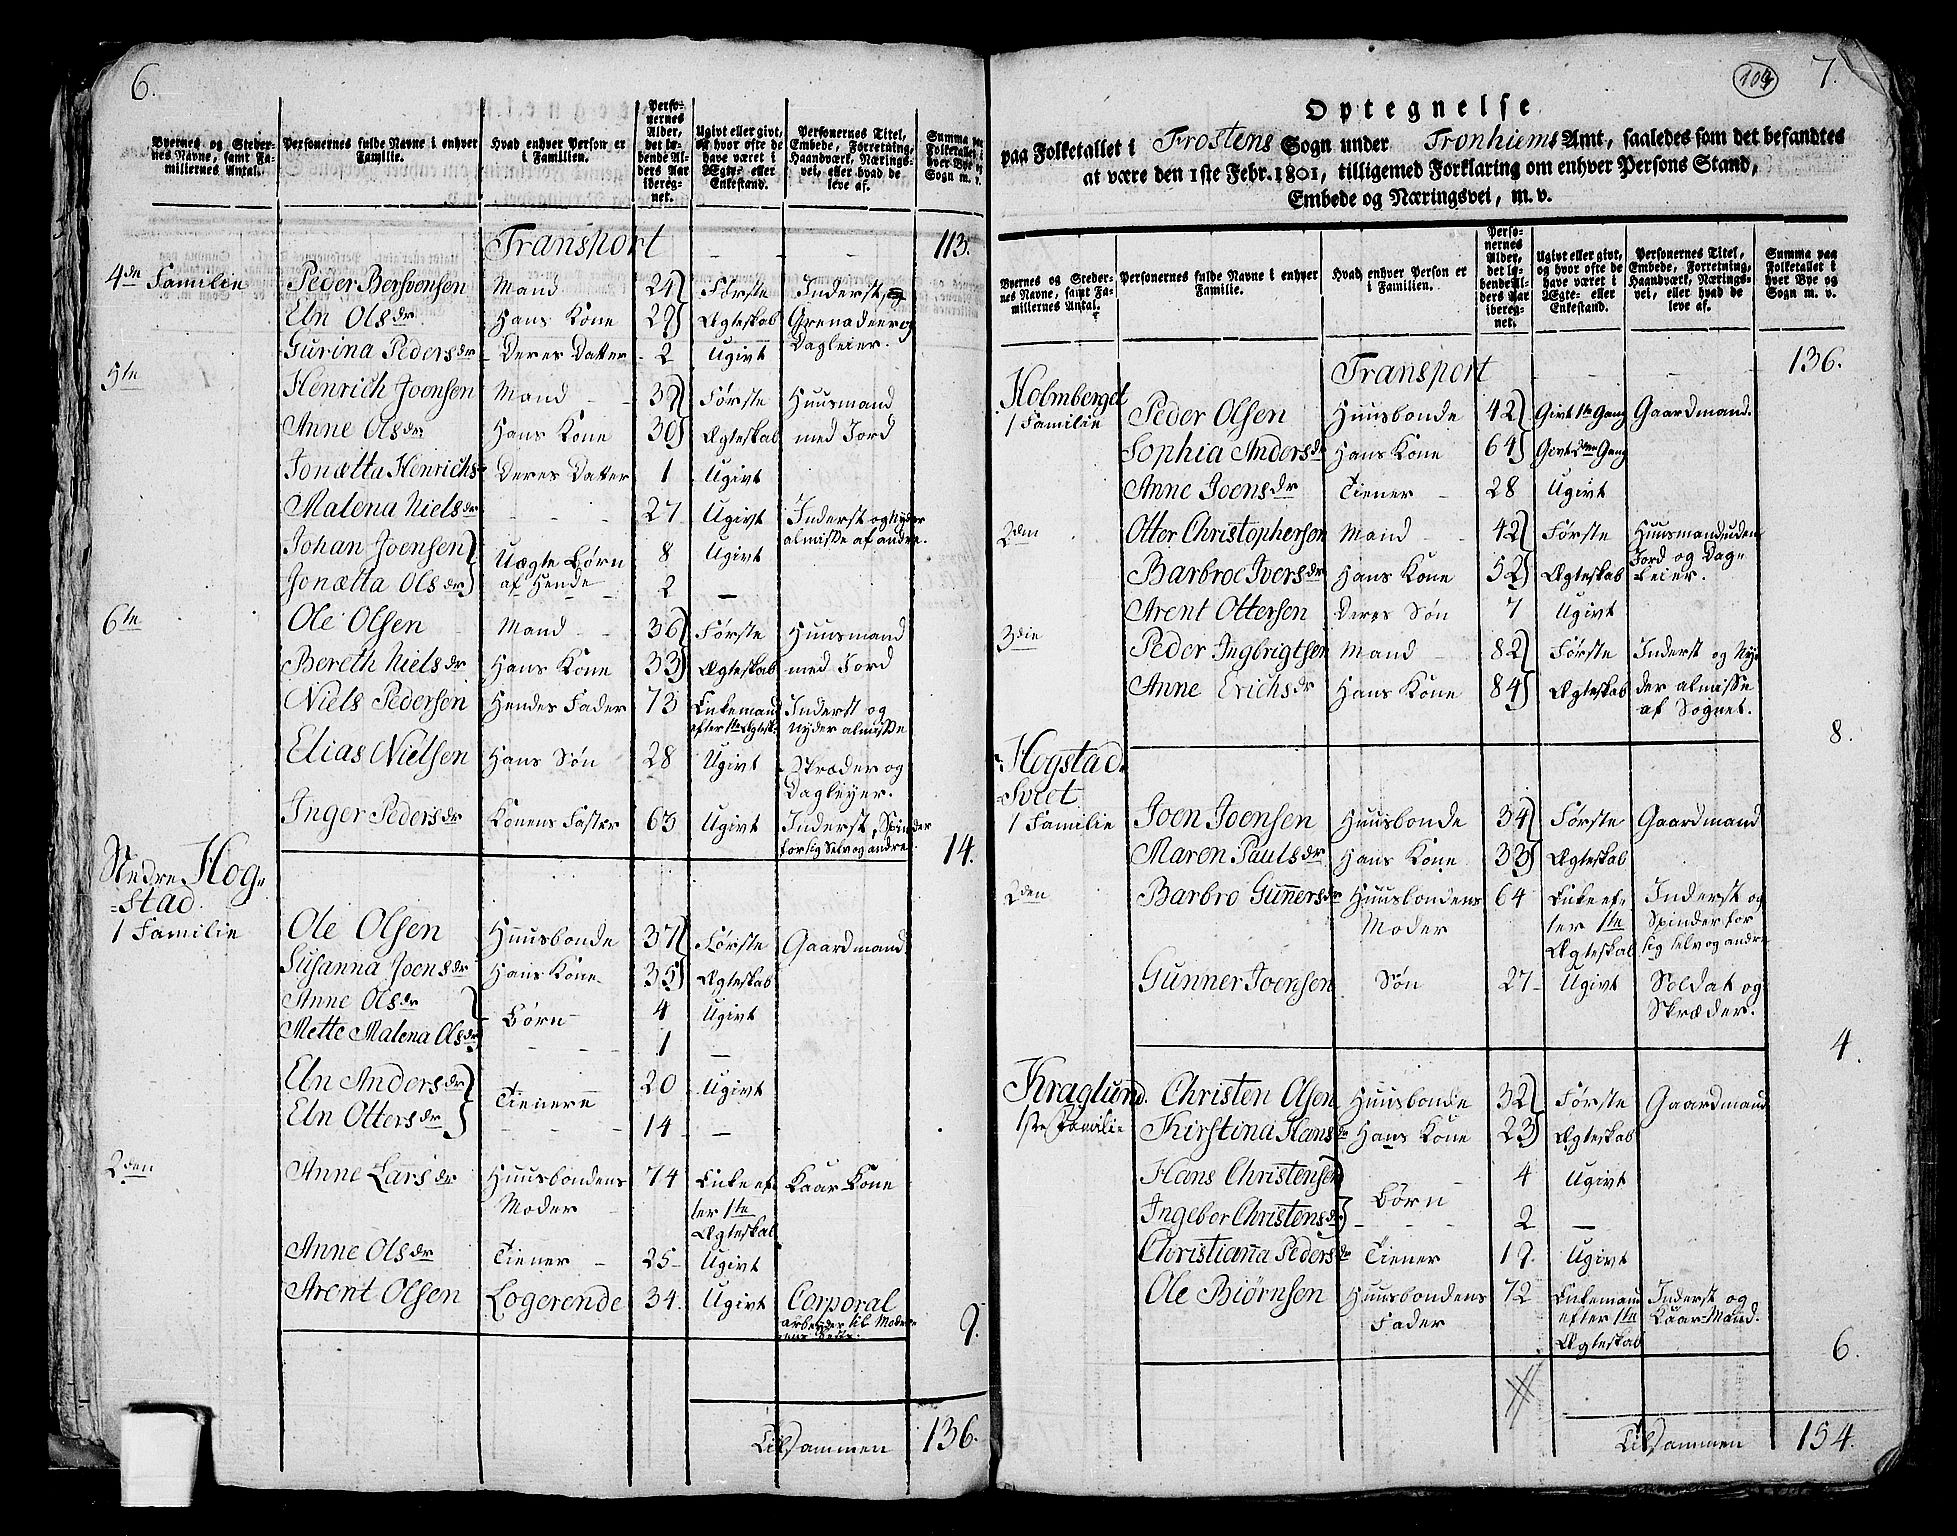 6.
Byernes og Steder-
nes Navne, samt Fa-
miliernes Antal.
Personernes fulde Navne i enhver
Familie.
Hvad enhver Person er
i Familien.
Perso-
nernes
Alder,
det lø-
bende Al-
ders Aar
ibereg-
net.
Ugivt eller givt,
og hvor ofte de
have været i
Ægte- eller
Enkestand.
Personernes Titel,
Embede, Forretning,
Haandværk, Nærings-
vei, eller hvad de
leve af.
Summa paa
Folketallet i
hver Bye og
Sogn m. v.
Transport 113.
4de Familie Peder Mand 24 Første Inderst,
Eln Olsdr Hans Kone 29 Ægteskab Grenadeer og
Gurina Pedersdr Deres Datter 2 Ugivt Dagleier.
5te Henrich Joensen Mand 39 Første Huusmand
Anne Olsdr Hans Kone 30 Ægteskab med Jord
Jonætta Henrichs Deres Datter 1 Ugivt
Malena Nielsdr 27 Ugivt Inderst og Nyder
almisse af andre.
Johan Joensen Uægte Børn 8 Ugivt
Jonætta Olsdr af Hende 2 —
6te Ole Olsen Mand 36 Første Huusmand
Bereth Nielsdr Hans Kone 33 Ægteskab med Jord
Niels Pedersen Hendes Fader 73 Enkemand Inderst og
efter 1te Ægtesk: Nyder almisse
Elias Nielsen Hans Søn 28 Ugivt Skræder og
Dagleyer.
Inger Pedersdr Konens Faster 63 Ugivt Inderst, Spinder
for sig Selv og andre. 14.
Nedre Hog-
stad.
1 Familie Ole Olsen Huusbonde 37 Første Gaardmand
Susanna Joensdr Hans Kone 35 Ægteskab
Anne Olsdr Børn 4 Ugivt
Mette Malena Olsdr 1 —
Eln Andersdr Tienere 20 Ugivt
Eln Ottersdr 14 —
2den Anne Larsdr Huusbondens 74 Enke ef- Kaar Kone
Moder ter 1te
Ægteskab
Anne Olsdr Tiener 25 Ugivt
Arent Olsen Logerende 34. Ugivt Corporal
arbeyder til Moder-
9.
Tilsammen 136.
109 7.
Optegnelse
paa Folketallet i Frostens Sogn under Tronhiems Amt, saaledes som det befandtes
at være den 1ste Febr. 1801, tilligemed Forklaring om enhver Persons Stand,
Embede og Næringsvei, m. v.
Byernes og Steder-
nes Navne, samt Fa-
miliernes Antal.
Personernes fulde Navne i enhver
Familie.
Hvad enhver Person er
i Familien.
Perso-
nernes
Alder,
det lø-
bende Al-
ders Aar
ibereg-
net.
Ugivt eller givt,
og hvor ofte de
have været i
Ægte- eller
Enkestand.
Personernes Titel,
Embede, Forretning,
Haandværk, Nærings-
vei, eller hvad de
leve af.
Summa paa
Folketallet i
hver Bye og
Sogn m. v.
Transport 136.
Holmberget
1 Familie Peder Olsen Huusbonde 42 Givt 1te Gang Gaardmand.
Sophia Andersdr Hans Kone 64 Givt 2den Gang
Anne Joensdr Tiener 28 Ugivt
2den Otter Christophersen Mand 42 Første Huusmand uden
Barbroe Iversdr Hans Kone 52 Ægteskab Jord og Dag-
leier.
Arent Ottersen Deres Søn 7 Ugivt
3die Peder Ingbrigtsen Mand 82 Første Inderst og Ny-
Anne Erichsdr Hans Kone 84 Ægteskab der almisse
af Sognet.
8.
Hogstad-
Svéet
1 Familie Joen Joensen Huusbonde 34 Første Gaardmand
Maren Paulsdr Hans Kone 33 Ægteskab
2den Barbro Gunnersdr Huusbondens 64 Enke ef- Inderst og
Moder ter 1te Spinder for
Ægteskab sig selv og andre
Gunner Joensen Søn 27 Ugivt Soldat og
Skræder.
4.
Kraglund.
1ste Familie Christen Olsen Huusbonde 32 Første Gaardmand
Kirstina Hansdr Hans Kone 23 Ægteskab
Hans Christensen Børn 4 Ugivt
Ingebor Christensdr 2 —
Christianna Pedersdr Tiener 19. Ugivt
Ole Biørnsen Huusbondens 72 Enkemand Inderst og
Fader efter 1te Kaar-Mand.
Ægteskab 6.
Tilsammen 154.